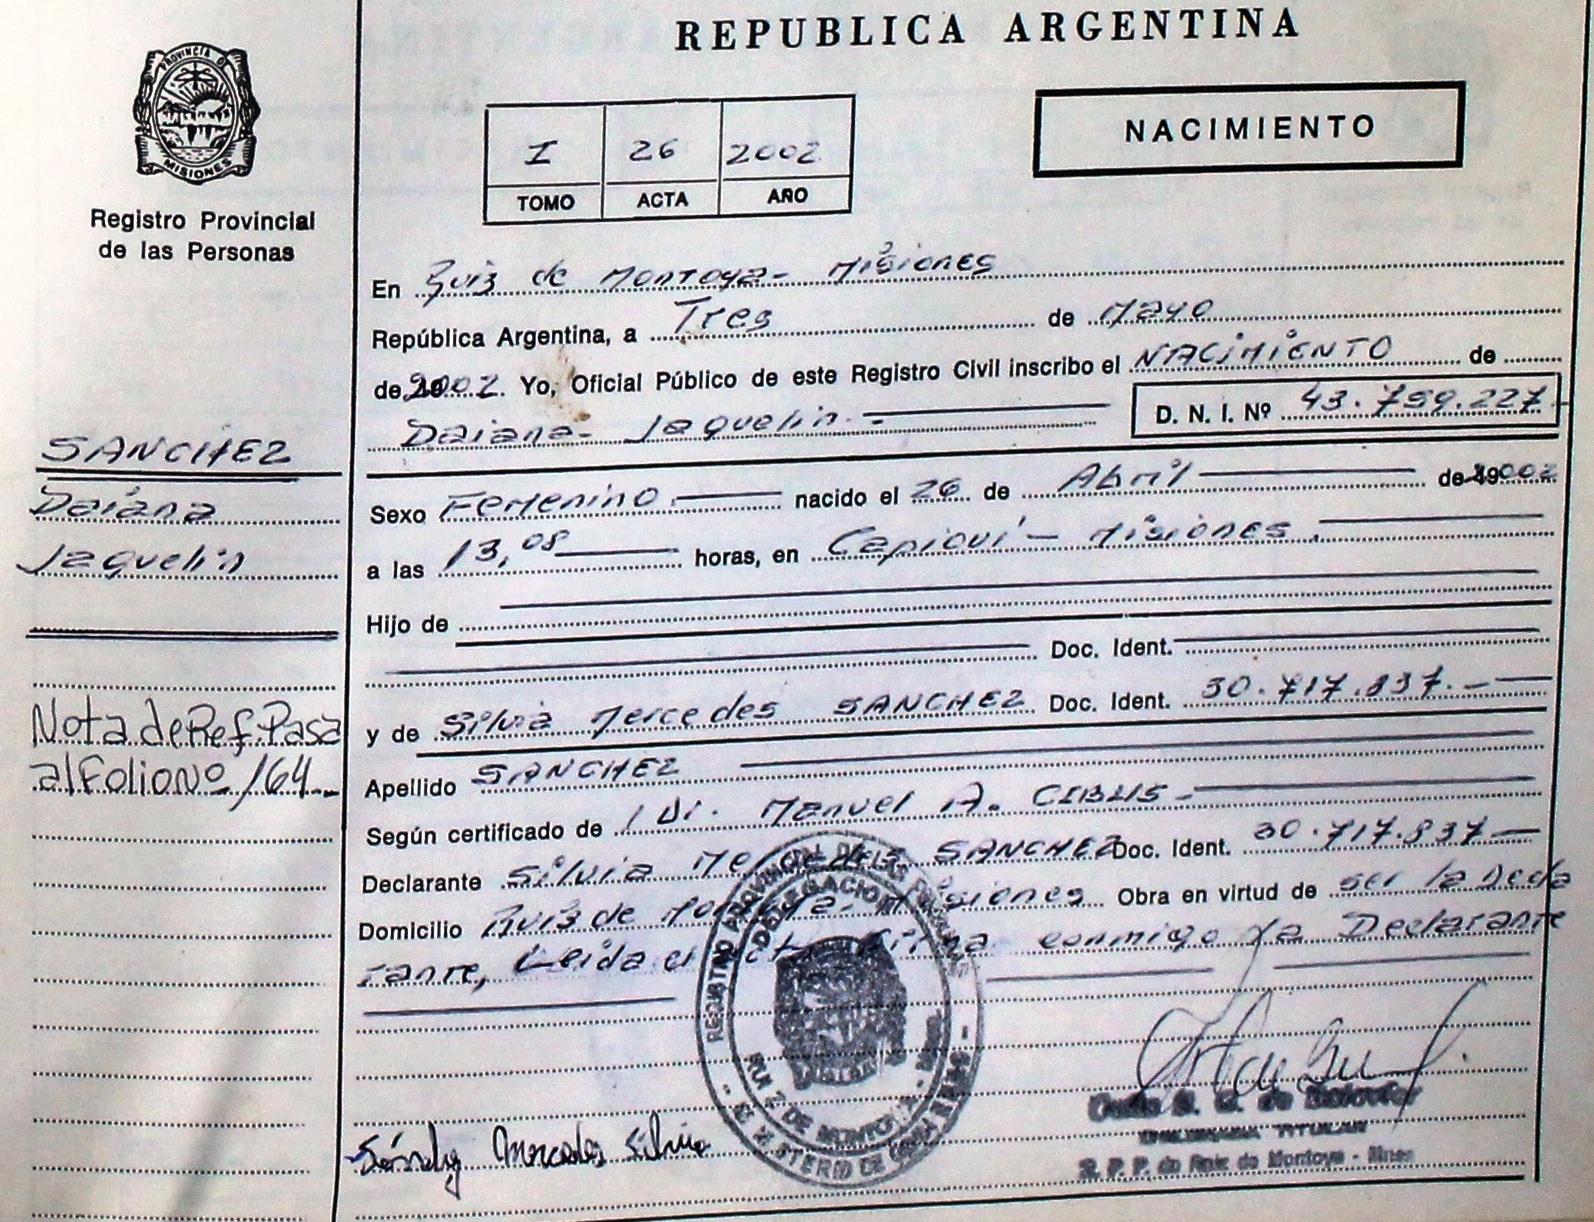 REPUBLICA ARGENTINA
PROVINCIA D
MISIONES
Registro Provincial
de las Personas
I 26 2002
TOMO ACTA AÑO
NACIMIENTO
En Ruiz de Montoya- Misiones
República Argentina, a Tres de Mayo
de 2002. Yo, Oficial Público de este Registro Civil inscribo el NACIMIENTO de
Daiana- Jaquelin.- D. N. I. Nº 43.759.227-
SANCHEZ
Daiana
Jaquelin
Sexo Femenino.- nacido el 26 de Abril de 19002
a las 13,08 horas, en Capioví - Misiones.
Hijo de
Doc. Ident.
y de Silvia Mercedes SANCHEZ Doc. Ident. 30.717.837.-
Nota de Ref. Pasa
al Folio nº 164.-
Apellido SANCHEZ
Según certificado de Dr. Manuel A. CIBILS-
Declarante Silvia Mercedes SANCHEZ Doc. Ident. 30.717.837-
Domicilio Ruiz de Montoya- Misiones Obra en virtud de ser la Decla
rante, Leida el acta firma conmigo la Declarante
REGISTRO PROVINCIAL DE LAS PERSONAS
DELEGACION
RUIZ DE MONTOYA
MINISTERIO DE
Mercedes Silvia
TITULAR
R. P. P. de Ruiz de Montoya - Mnes